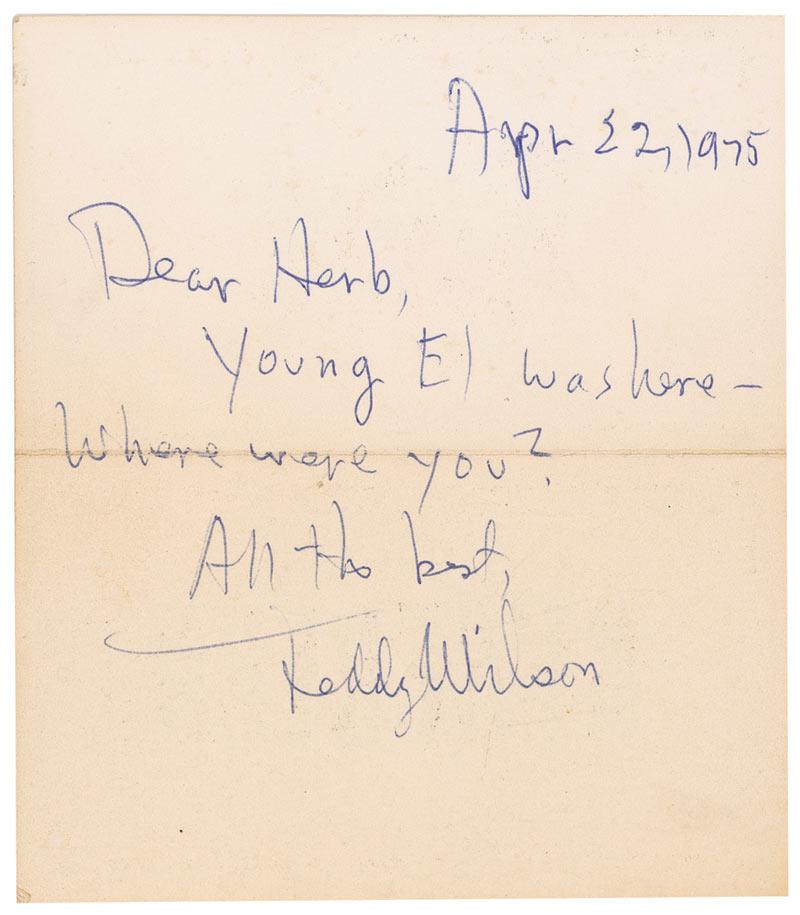 Apr 22, 1975
Dear Herb,
Young El was here –
Where were you?
All the best,
Teddy Wilson